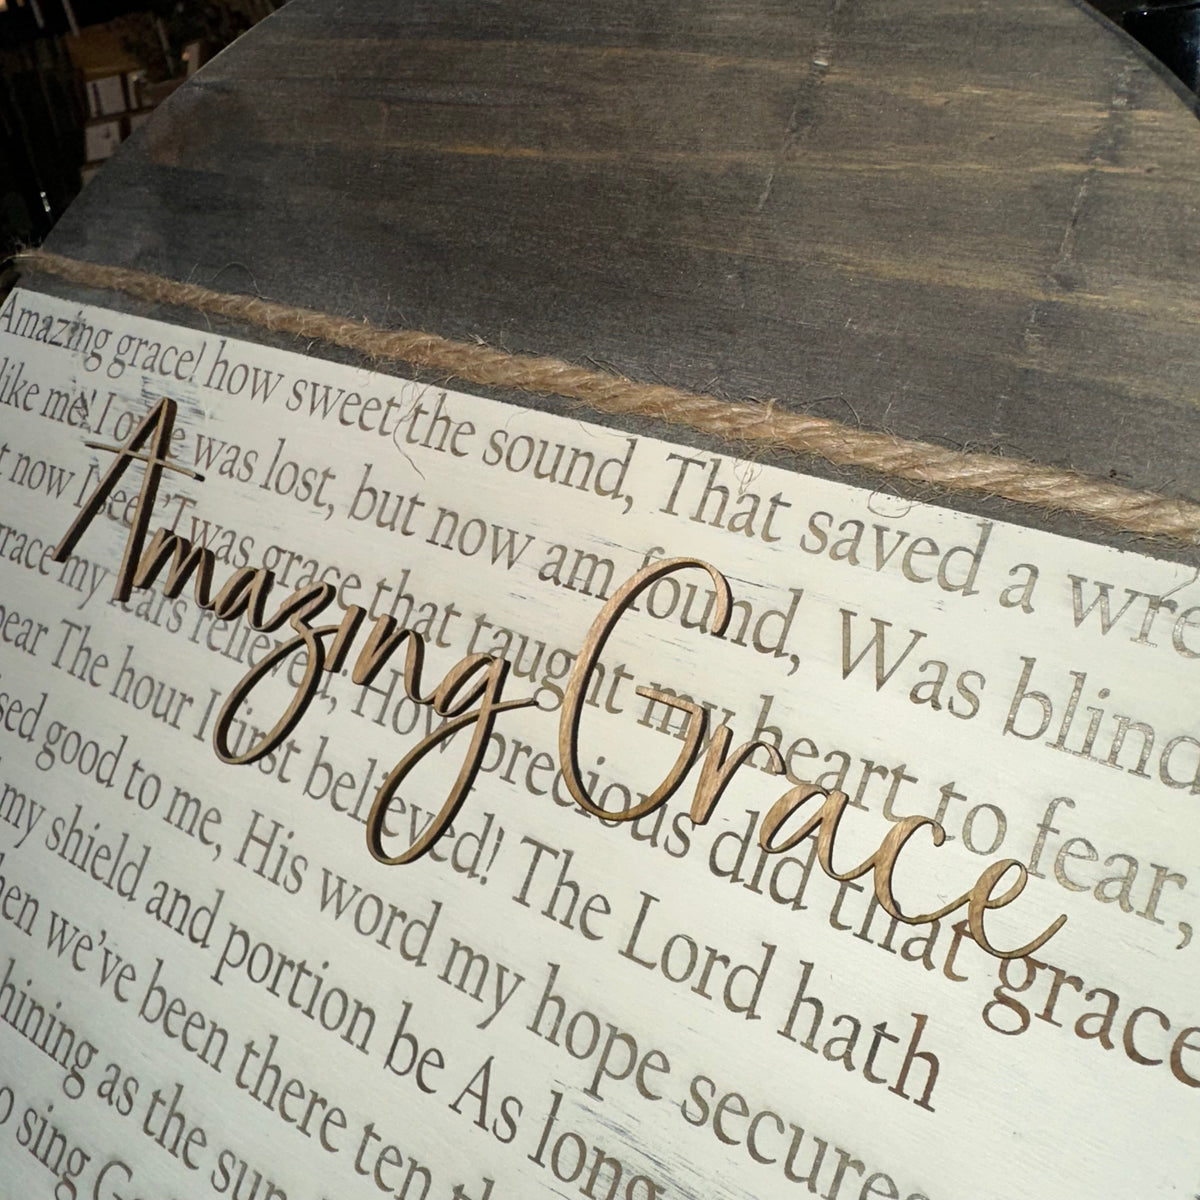 Amazing grace! how sweet the sound, That saved a
like me! I was lost, but now am found, Was blind
now I see. 'Twas grace that taught my heart to fear,
my fears relieved; How precious did that grace
The hour I first believed! The Lord hath
good to me, His word my hope secures
my shield and portion be As long
we've been there ten
as the sun
sing
Amazing Grace